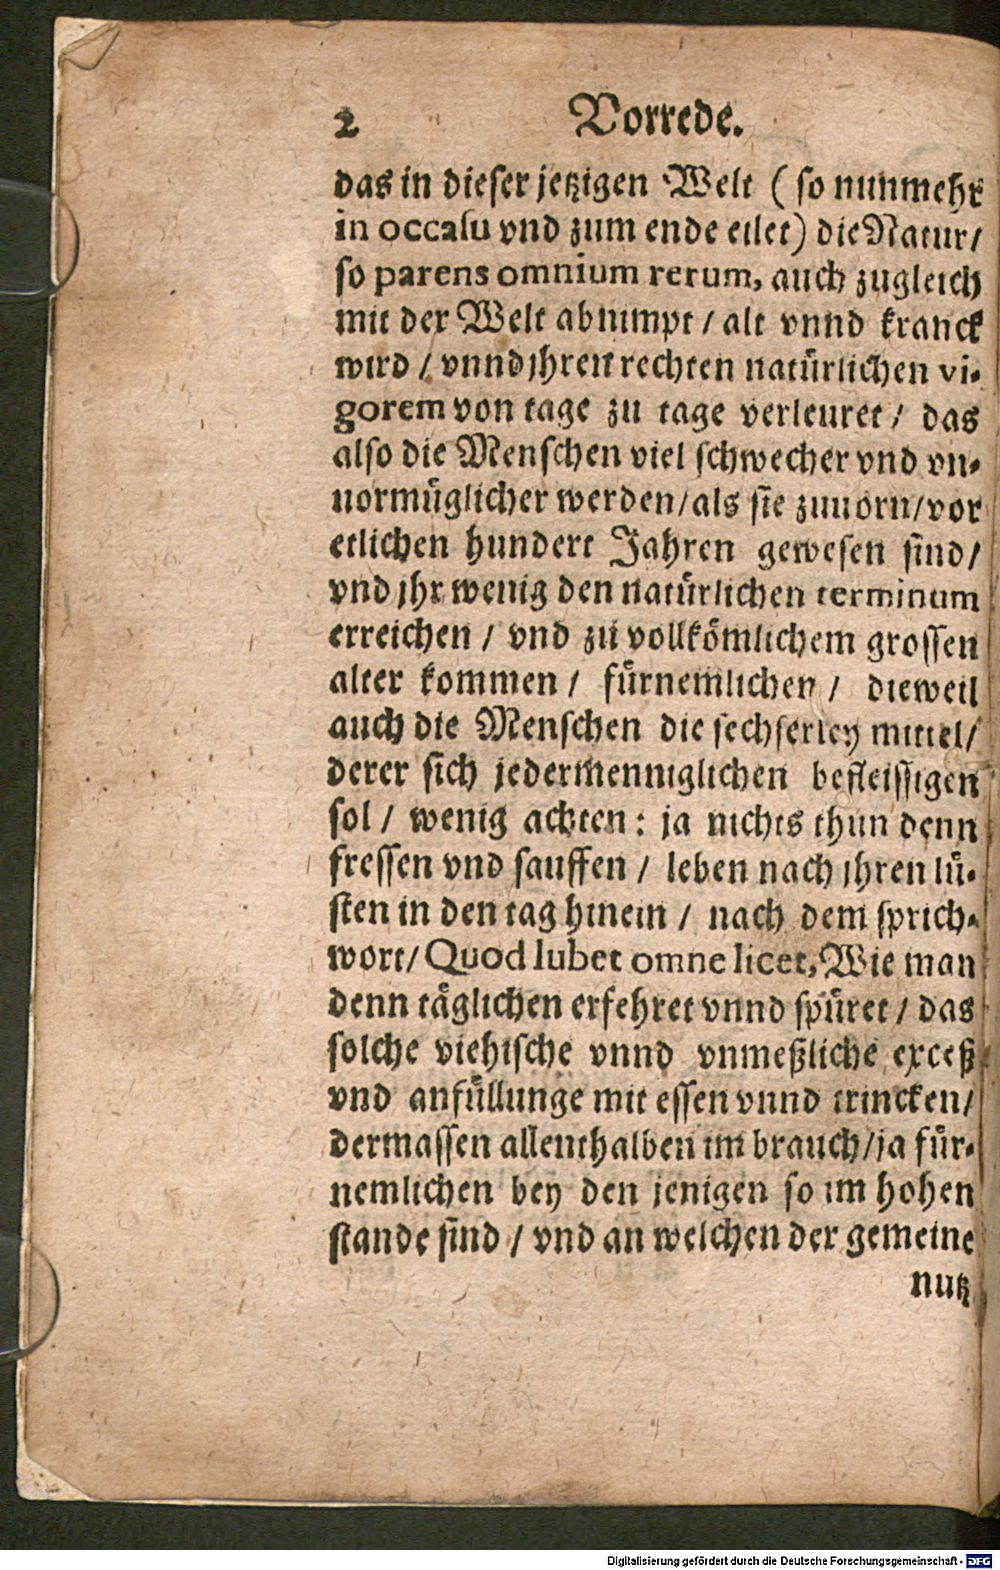 2 Vorrede.
das in dieser jetzigen Welt (so nunmehr
in occasu vnd zum ende eilet) die Natur/
so parens omnium rerum, auch zugleich
mit der Welt abnimpt / alt vnnd kranck
wird / vnnd jhren rechten natürlichen vi-
gorem von tage zu tage verleuret / das
also die Menschen viel schwecher vnd vn-
uormüglicher werden/als sie zuuorn/vor
etlichen hundert Jahren gewesen sind/
vnd jhr wenig den natürlichen terminum
erreichen / vnd zu vollkömlichem grossen
alter kommen / fürnemlichen / dieweil
auch die Menschen die sechserley mittel/
derer sich jedermenniglichen befleissigen
sol / wenig achten: ja nichts thun denn
fressen vnd sauffen / leben nach jhren lü-
sten in den tag hinein / nach dem sprich-
wort/ Quod lubet omne licet, Wie man
denn täglichen erfehret vnnd spüret / das
solche viehische vnnd vnmeßliche exceß
vnd anfüllunge mit essen vnnd trincken/
dermassen allenthalben im brauch/ja für-
nemlichen bey den jenigen so im hohen
stande sind / vnd an welchen der gemeine
nutz
Digitalisierung gefördert durch die Deutsche Forschungsgemeinschaft - DFG